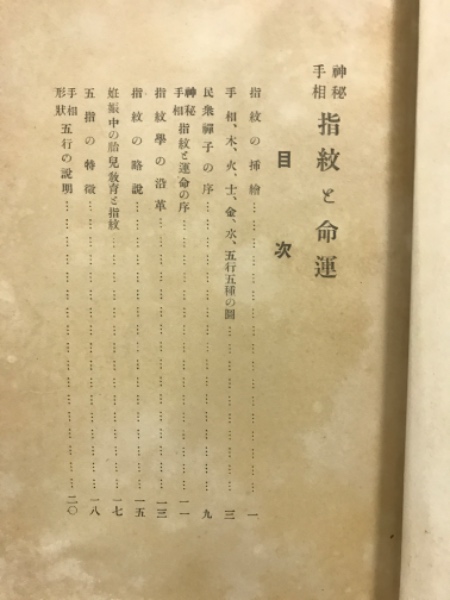 神秘手相 指紋と命運
目次
指紋の挿繪…………………………一
手相、木、火、土、金、水、五行五種の圖…………………………三
民衆禪子の序…………………………九
神秘手相 指紋と運命の序…………………………一一
指紋學の沿革…………………………一三
指紋の略說…………………………一五
姙娠中の胎兒敎育と指紋…………………………一七
五指の特徵…………………………一八
手相形狀 五行の說明…………………………二〇